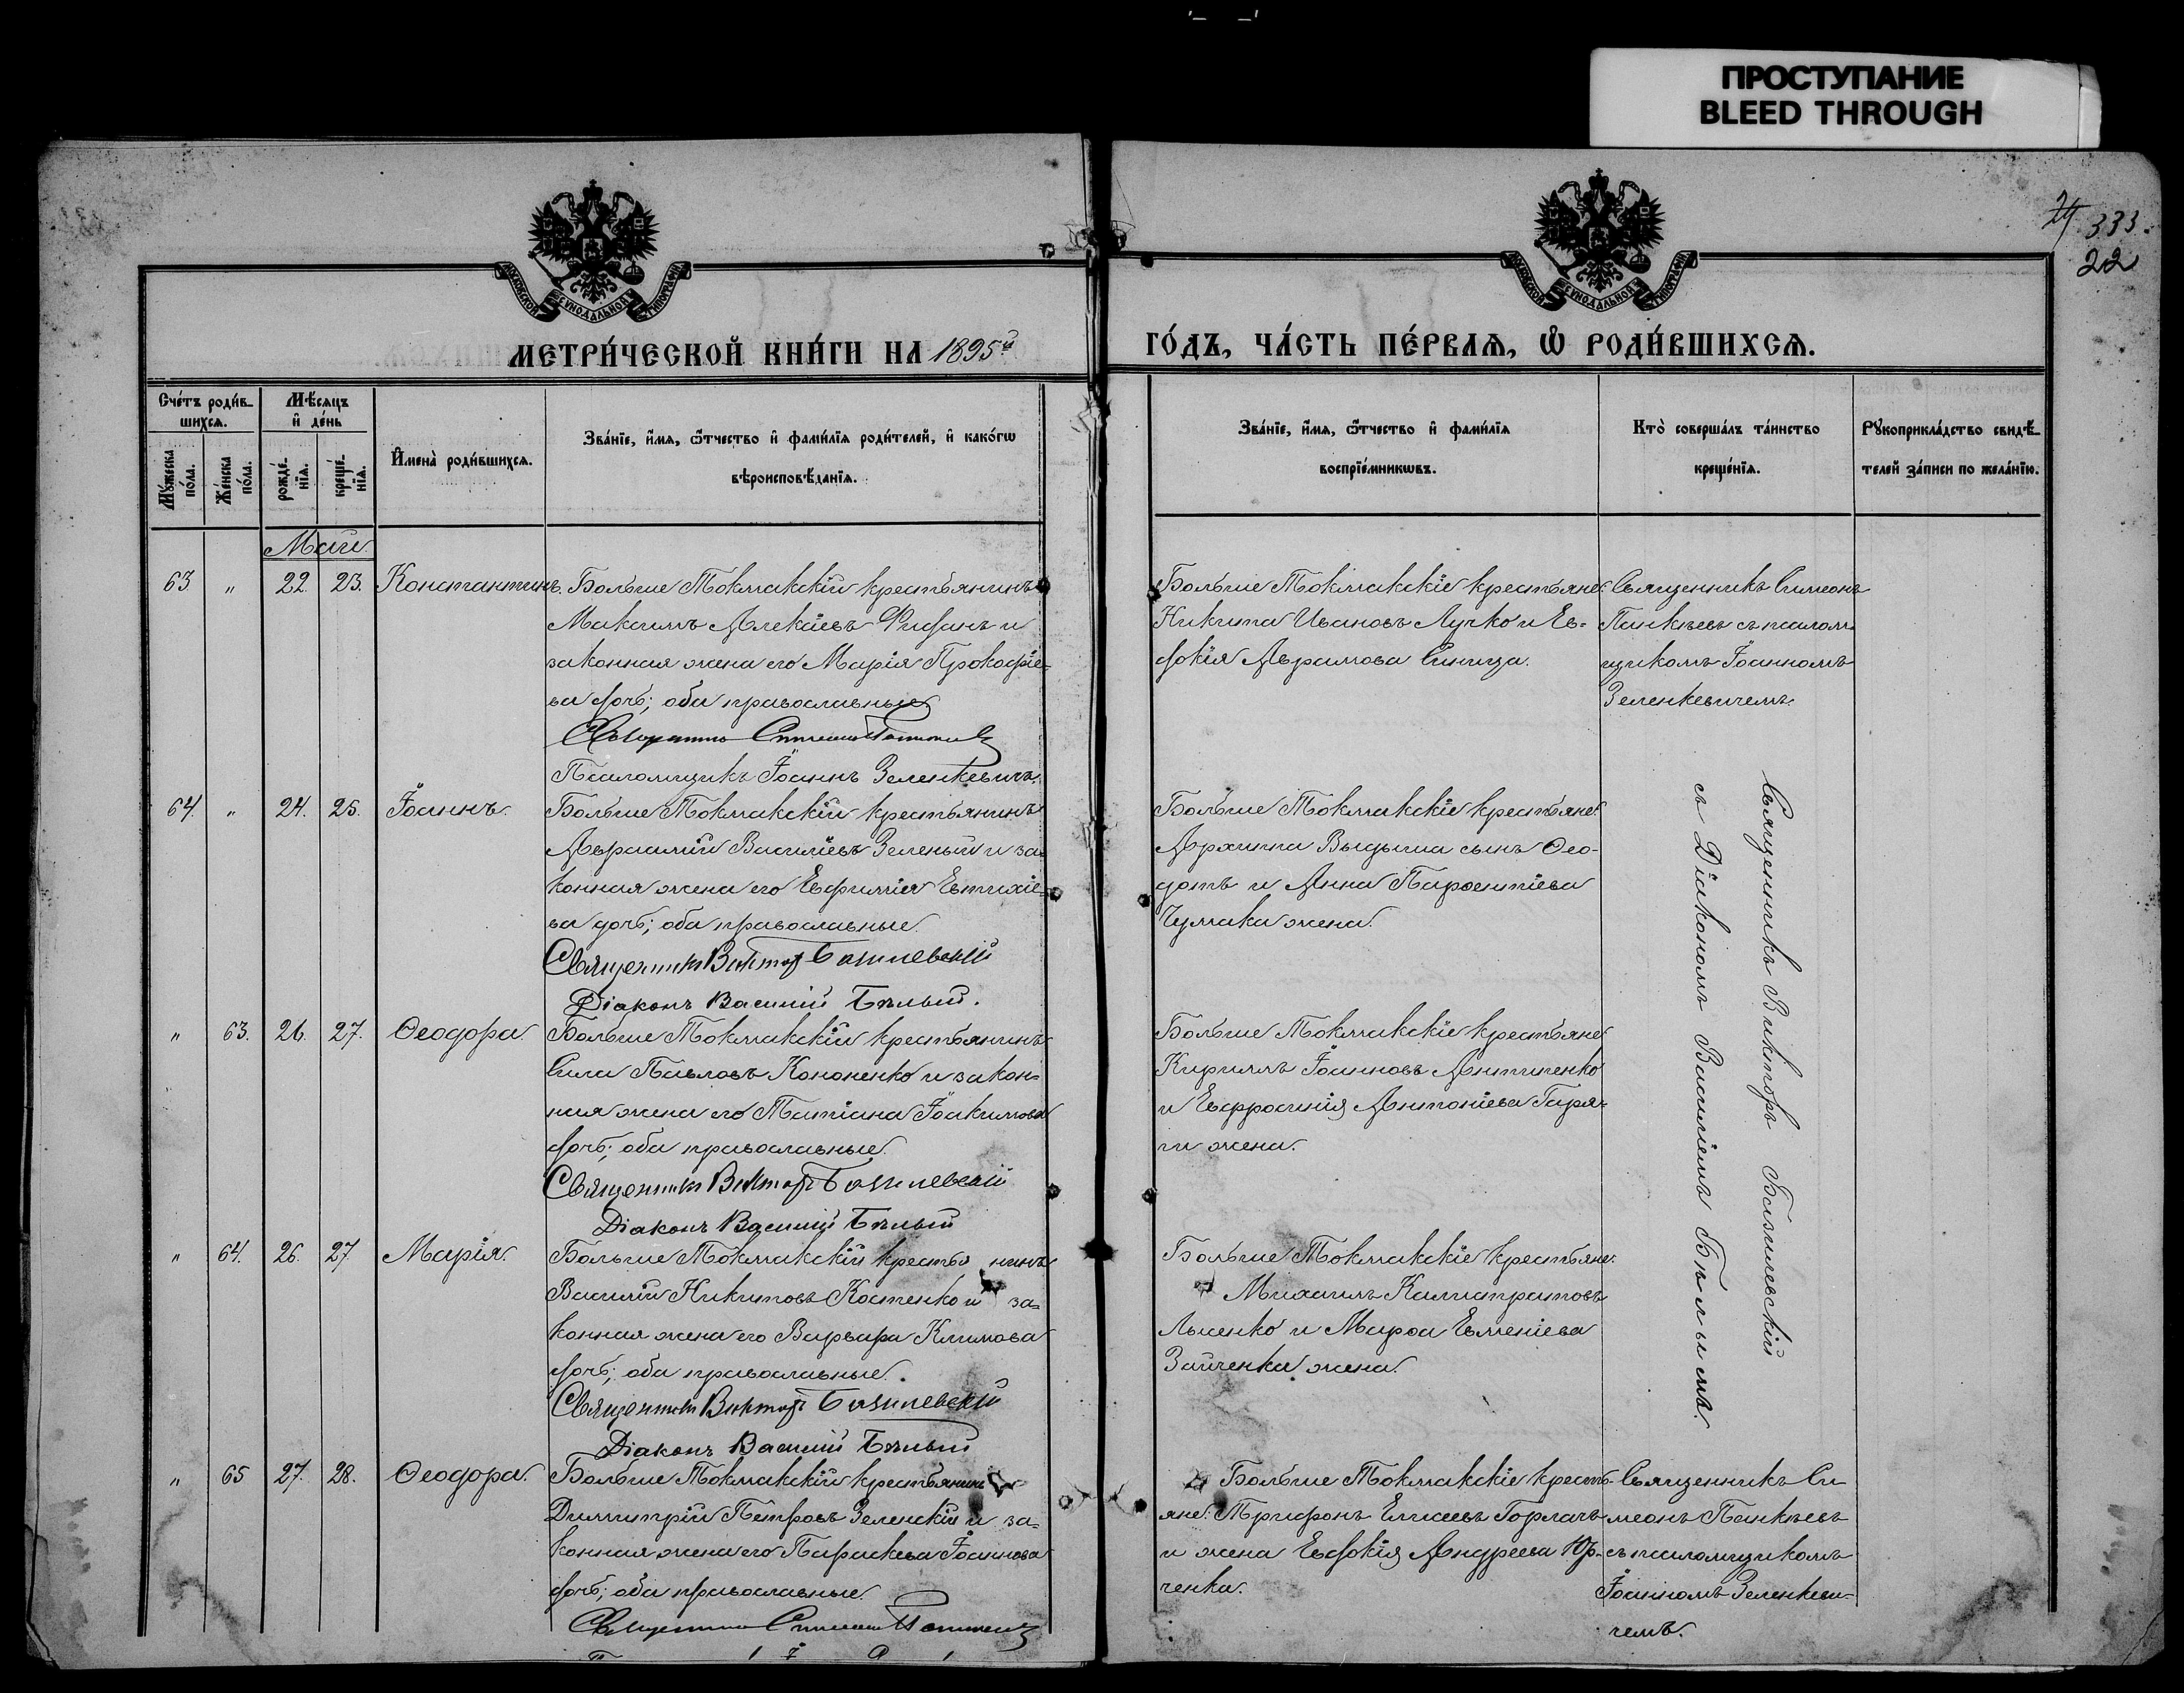 ПРОСТУПАНИЕ
BLEED THROUGH
24 333.
22
МОСКОВСКОЙ СѴНОДАЛЬНОЙ ТИПОГРАФІИ
МОСКОВСКОЙ СѴНОДАЛЬНОЙ ТИПОГРАФІИ
МЕТРИ́ЧЕСКОЙ КНИ́ГИ НА 1895й
ГО́ДЪ, ЧА́СТЬ ПЕ́РВАѦ, Ѡ҆ РОДИ́ВШИХСѦ.
Сче́тъ роди́в-
шихсѧ.
Мꙋ́жеска по́ла.
Же́нска по́ла.
Мѣ́сѧцъ
и҆ де́нь
рожде́-нїѧ.
креще́-нїѧ.
И҆мена̀ роди́вшихсѧ.
Зва́нїе, и҆́мѧ, ѻ҆́тчество и҆ фами́лїѧ роди́телей, и҆ како́гѡ
вѣроисповѣ́данїѧ.
Зва́нїе, и҆́мѧ, ѻ҆́тчество и҆ фами́лїѧ
воспрїе́мникѡвъ.
Кто̀ соверша́лъ та́инство
креще́нїѧ.
Рꙋкоприкла́дство свидѣ́-
телей за́писи по жела́нїю.
Май
63 „ 22. 23. Константинъ.
Больше Токмакскій крестьянинъ
Максимъ Алексіевъ Фисанъ и
законная жена его Марія Прокофіе-
ва дочь; оба православные
Священникъ Симеонъ
Псаломщикъ Іоаннъ Зеленкевичъ.
Больше Токмакскіе крестьяне:
Никита Ивановъ Лучко и Ев-
докія Аврамова Синица.
Священникъ Симеонъ
Панкѣевъ съ псалом-
щикомъ Іоанномъ
Зеленкевичемъ.
64. „ 24. 25. Іоаннъ.
Больше Токмакскій крестьянинъ
Авраамій Василіевъ Зеленый и за-
конная жена его Евфимія Евтихіе-
ва дочь; оба православные.
Священникъ Викторъ Базилевскій
Діаконъ Василій Бѣлый.
Больше Токмакскіе крестьяне:
Архипа Выдыша сынъ Ѳео-
дотъ и Анна Парѳентіева
Чумака жена.
Священникъ Викторъ Базилевскій
съ Діакономъ Василіемъ Бѣлымъ.
„ 63. 26. 27. Ѳеодора.
Больше Токмакскій крестьянинъ
Сила Павловъ Кононенко и закон-
ная жена его Татіана Іоакимова
дочь; оба православные.
Священникъ Викторъ Базилевскій
Діаконъ Василій Бѣлый
Больше Токмакскіе крестьяне
Кириллъ Іоанновъ Антипенко
и Евфросинія Антоніева Гаря-
ги жена.
„ 64. 26. 27. Марія.
Больше Токмакскій крестья нинъ
Василій Никитовъ Костенко и за-
конная жена его Варвара Климова
дочь; оба православные.
Священникъ Викторъ Базилевскій
Діаконъ Василій Бѣлый
Больше Токмакскіе крестьяне:
Михаилъ Калистратовъ
Лысенко и Марѳа Евменіева
Зайченка жена.
„ 65 27. 28. Ѳеодора.
Больше Токмакскій крестьянинъ
Димитрій Петровъ Зеленскій и за-
конная жена его Параскева Іоаннова
дочь; оба православные.
Священникъ Симеонъ
Больше Токмакскіе кресть-
яне: Трифонъ Елисеевъ Горлачъ
и жена Евдокія Андреева Юр-
ченка.
Священникъ Си
меонъ Панкѣевъ
съ псаломщикомъ
Іоанномъ Зеленкеви-
чемъ.